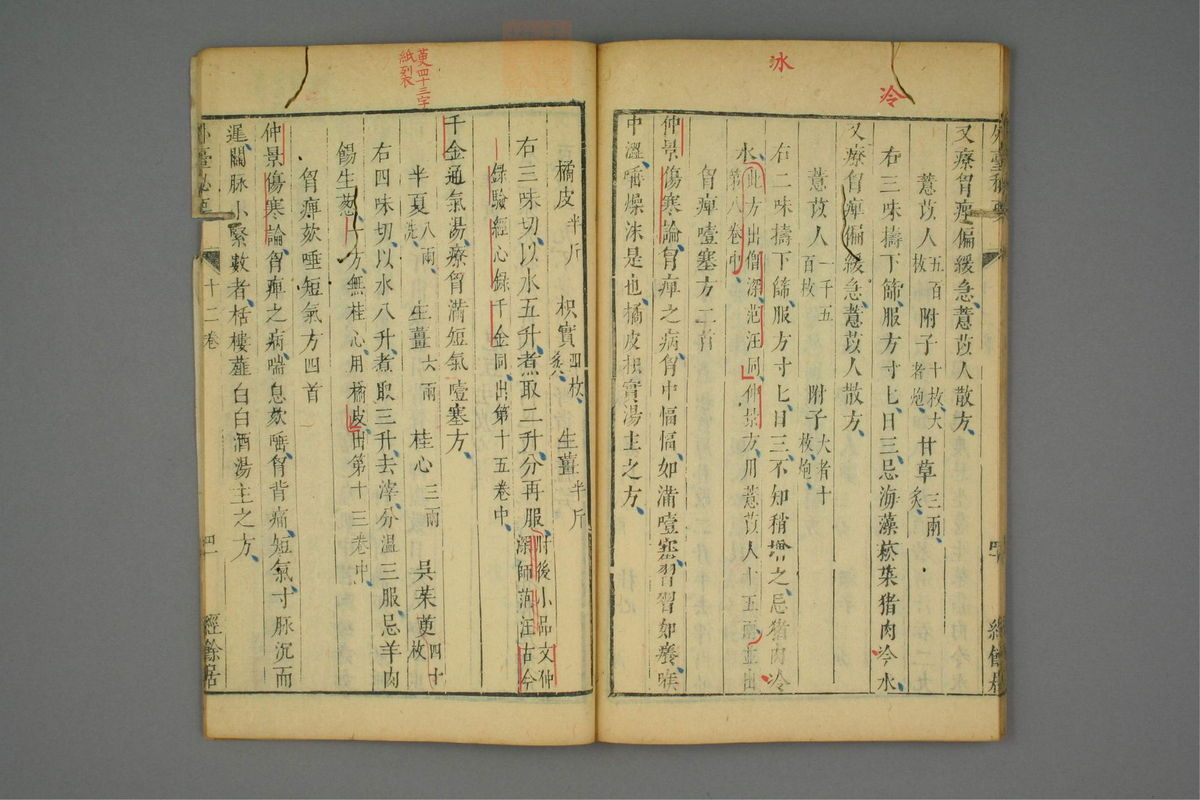 冰
冷
又療胷痺偏緩急薏苡人散方
薏苡人五百枚附子十枚大者炮甘草三兩炙
右三味擣下篩服方寸匕日三忌海藻菘菜猪肉冷水
又療胷痺偏緩急薏苡人散方
薏苡人一千五百枚 附子大者十枚炮
右二味擣下篩服方寸匕日三不知稍增之忌猪肉冷
水此方出僧深范汪同仲景方用薏苡人十五兩並出第八卷中
胷痺噎塞方二首
仲景傷寒論胷痺之病胷中愊愊如滿噎塞習習如癢喉
中澀唾燥沫是也橘皮枳實湯主之方
外臺秘要
十二卷
經餘居
萸四十三字
紙裂
橘皮半斤 枳實四枚炙 生薑半斤
右三味切以水五升煮取二升分再服肘後小品文仲深師范汪古今
錄驗經心錄千金同出第十五卷中
千金通氣湯療胷滿短氣噎塞方
半夏八兩洗 生薑六兩 桂心三兩 吳茱萸四十枚
右四味切以水八升煮取三升去滓分溫三服忌羊肉
餳生葱一方無桂心用橘皮出第十三卷中
胷痺欬唾短氣方四首
仲景傷寒論胷痺之病喘息欬唾胷背痛短氣寸脉沉而
遲關脉小緊數者栝樓薤白白酒湯主之方
外臺秘要
十二卷
四一
經餘居